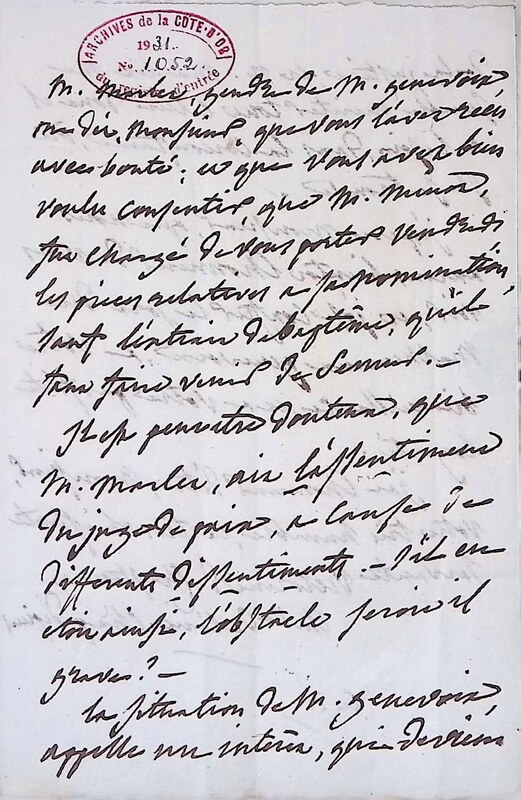 ARCHIVES de la CÔTE-D'OR
1931
No. 1052
d'entrée
M. Marlea, gendre de M. genevoix,
me dit, Monsieur, que vous l'avez reçu
avec bonté; et que vous avez bien
voulu consentir, que M. Menon,
fut chargé de vous porter vendredi
les pieces relatives a sa nomination,
sauf l'extrait de baptême, qu'il
faut faire venir de Semur. —
Il est peut etre douteux, que
M. Marlea, ait l'assentiment
du juge de paix, a cause de
differents dissentiments. — S'il en
etoit ainsi, l'obstacle seroit il
grave? —
la situation de M. genevoix,
appelle un interêt, qui devient